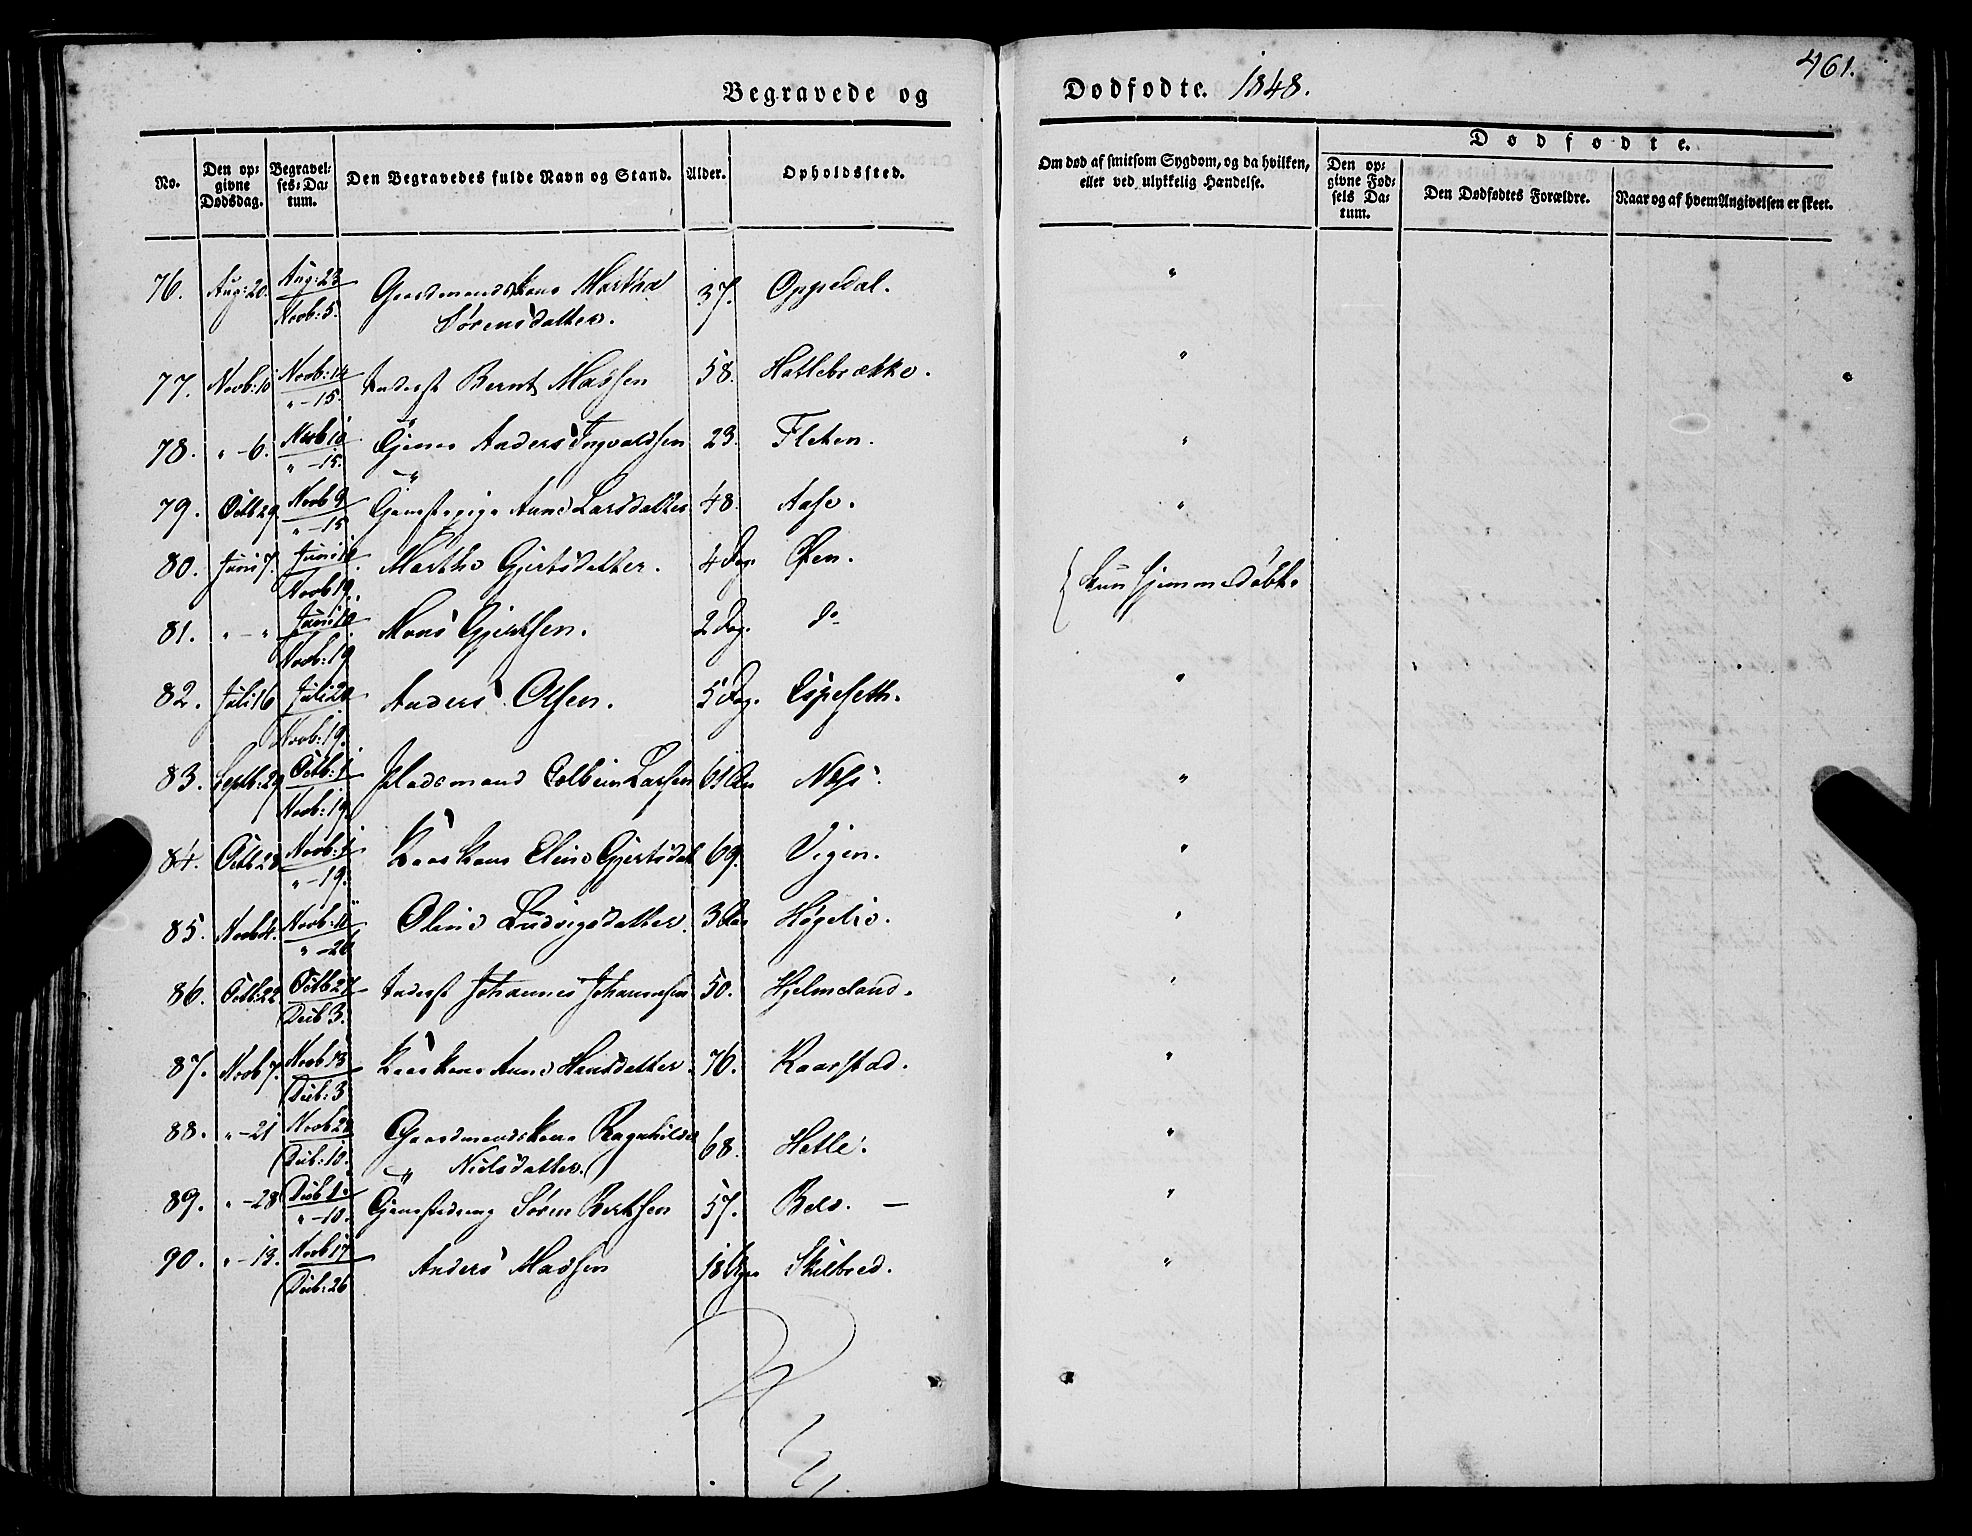 461.
Begravede og Dødfødte. 1848.
No.
Den opgivne Dødsdag.
Begravelses-Datum.
Den Begravedes fulde Navn og Stand.
Alder.
Opholdssted.
Om død af smitsom Sygdom, og da hvilken, eller ved ulykkelig Hændelse.
Dødfødte.
Den opgivne Fødsels Datum.
Den Dødfødtes Forældre.
Naar og af hvem Angivelsen er skeet.
76. Aug: 20. Aug: 23 Gaardmandskone Martha 37. Oppedal. "
Novb: 5. Sørensdatter.
77. Novb: 10 Novb: 14 Inderst Bernt Madsen 58. Hatlebrække. "
" - 15.
78. " - 6. Novb 10 Gjenn Anders Ingvaldsen 23. Fleten. "
" - 15.
79. Octb 29 Novb 9 Anne Larsdatter 48. Aase. "
" - 15
80. Juni 7. Juni Marthe Gjertsdatter. 4 Dag. Øen. { Kun hjemmedøbt.
Novb 19.
81. " - " Juni Mons Gjertsen. 2 Dag. do
Novb: 19
82. Juli 16 Juli 20 Anders Olsen. 5 Dag. Espeseth. "
Novb: 19.
83. Septb: 29 Octb: 1 Pladsmand Colbein Larsen 61 Aar Næss. "
Novb: 19.
84. Octb 28 Novb: 1 Kaarkone Eline Gjertsdat 69. Vigen. "
" - 19.
85. Novb 4. Novb: 11 Oline Ludvigsdatter. 3 Aar Høgelie. "
" - 26
86. Octb: 22 Octb 27 Inderst Johannes Johannesen 50. Hjelmeland. "
Decb 3.
87. Novb 7. Novb 13 Kaarkone Anne Hansdatter. 76. Kaarstad. "
Decb: 3
88. " - 21 Novb 28 Gaardmandskone Ragnhilde 68. Hatle. "
Decb: 10. Nielsdatter.
89. " - 28 Decb 1. Søren Bertsen 57. Belo. — "
" - 10.
90. " - 13. Novb 17 Anders Madsen 18 Uger Skilbred. "
Decb: 26